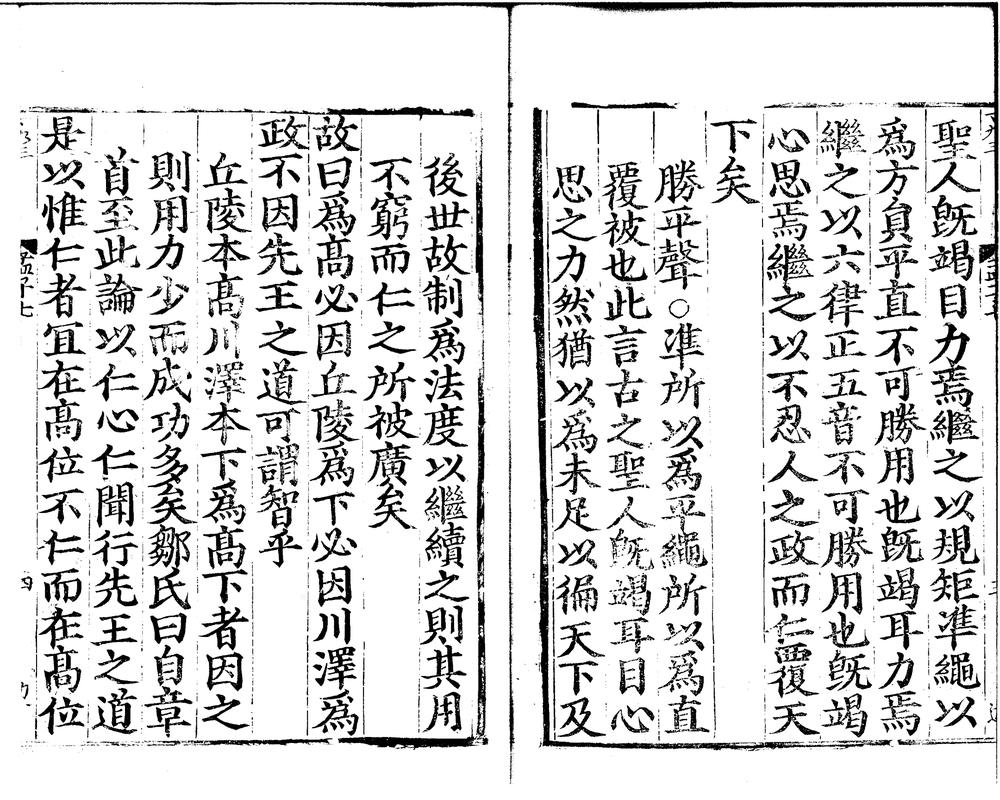 聖人旣竭目力焉繼之以規矩準繩以
爲方負平直不可勝用也旣竭耳力焉
繼之以六律正五音不可勝用也旣竭
心思焉繼之以不忍人之政而仁覆天
下矣
勝平聲○準所以爲平繩所以爲直
覆被也此言古之聖人旣竭耳目心
思之力然猶以爲未足以徧天下及
後世故制爲法度以繼續之則其用
不窮而仁之所被廣矣
故曰爲髙必因丘陵爲下必因川澤爲
政不因先王之道可謂智乎
丘陵本髙川澤本下爲髙下者因之
則用力少而成功多矣鄒氏曰自章
首至此論以仁心仁聞行先王之道
是以惟仁者宜在髙位不仁而在髙位
孟子七
四